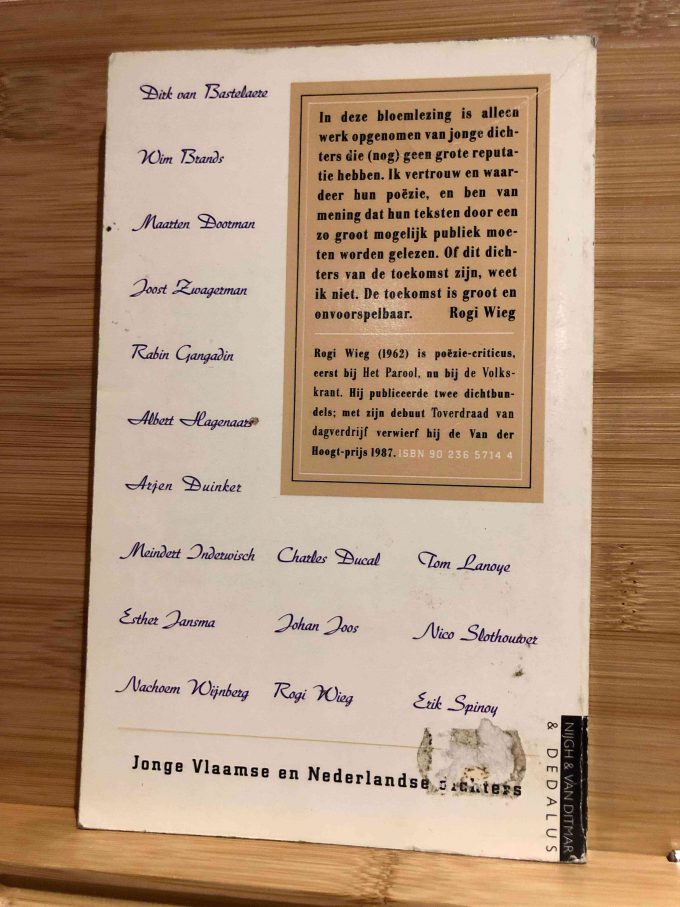 Dirk van Bastelaere
Wim Brands
Maarten Doorman
Joost Zwagerman
Rabin Gangadin
Albert Hagenaars
Arjen Duinker
Meindert Inderwisch
Esther Jansma
Nachoem Wijnberg
Charles Ducal
Johan Joos
Rogi Wieg
Tom Lanoye
Nico Slothouwer
Erik Spinoy
In deze bloemlezing is alleen
werk opgenomen van jonge dich-
ters die (nog) geen grote reputa-
tie hebben. Ik vertrouw en waar-
deer hun poëzie, en ben van
mening dat hun teksten door een
zo groot mogelijk publiek moe-
ten worden gelezen. Of dit dich-
ters van de toekomst zijn, weet
ik niet. De toekomst is groot en
onvoorspelbaar. Rogi Wieg
Rogi Wieg (1962) is poëzie-criticus,
eerst bij Het Parool, nu bij de Volks-
krant. Hij publiceerde twee dichtbun-
dels; met zijn debuut Toverdraad van
dagverdrijf verwierf hij de Van der
Hoogt-prijs 1987. ISBN 90 236 5714 4
Jonge Vlaamse en Nederlandse dichters
NIJGH & VAN DITMAR
& DEDALUS